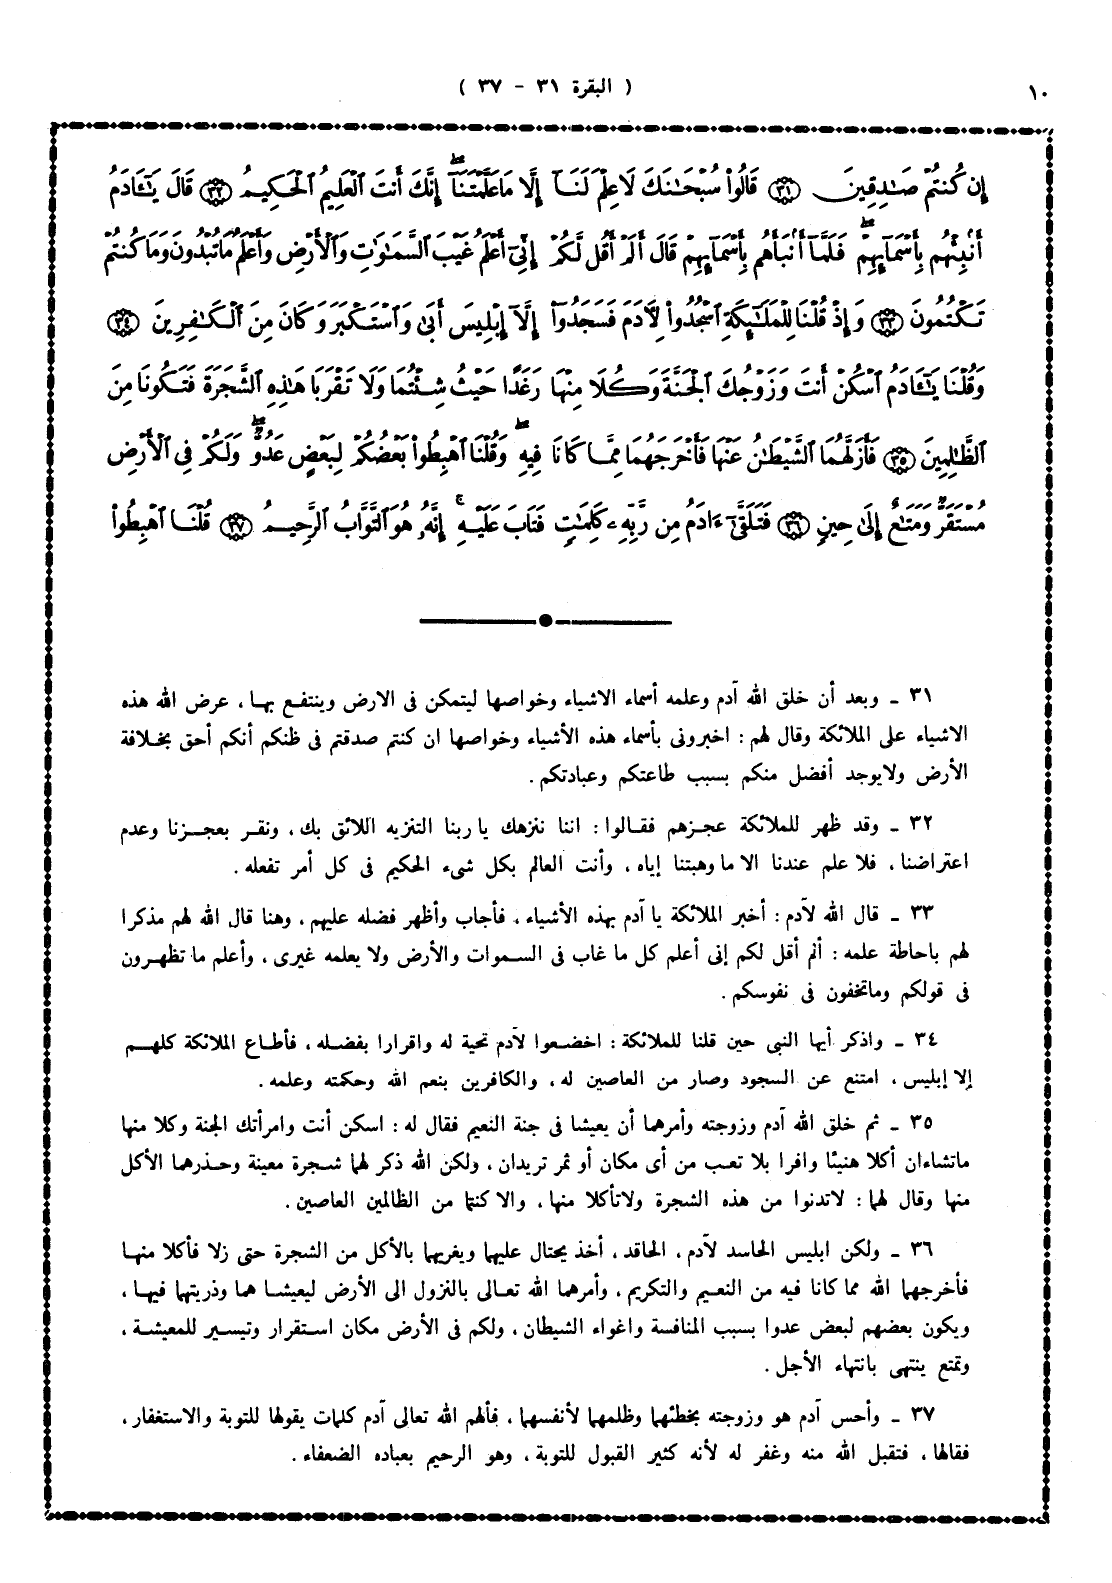 ١٠
( البقرة ٣١ - ٣٧ )
إِن كُنتُمْ صَـٰدِقِينَ ٣١ قَالُوا۟ سُبْحَـٰنَكَ لَا عِلْمَ لَنَآ إِلَّا مَا عَلَّمْتَنَآ ۖ إِنَّكَ أَنتَ ٱلْعَلِيمُ ٱلْحَكِيمُ ٣٢ قَالَ يَـٰٓـَٔادَمُ
أَنۢبِئْهُم بِأَسْمَآئِهِمْ ۖ فَلَمَّآ أَنۢبَأَهُم بِأَسْمَآئِهِمْ قَالَ أَلَمْ أَقُل لَّكُمْ إِنِّىٓ أَعْلَمُ غَيْبَ ٱلسَّمَـٰوَٰتِ وَٱلْأَرْضِ وَأَعْلَمُ مَا تُبْدُونَ وَمَا كُنتُمْ
تَكْتُمُونَ ٣٣ وَإِذْ قُلْنَا لِلْمَلَـٰٓئِكَةِ ٱسْجُدُوا۟ لِـَٔادَمَ فَسَجَدُوٓا۟ إِلَّآ إِبْلِيسَ أَبَىٰ وَٱسْتَكْبَرَ وَكَانَ مِنَ ٱلْكَـٰفِرِينَ ٣٤
وَقُلْنَا يَـٰٓـَٔادَمُ ٱسْكُنْ أَنتَ وَزَوْجُكَ ٱلْجَنَّةَ وَكُلَا مِنْهَا رَغَدًا حَيْثُ شِئْتُمَا وَلَا تَقْرَبَا هَـٰذِهِ ٱلشَّجَرَةَ فَتَكُونَا مِنَ
ٱلظَّـٰلِمِينَ ٣٥ فَأَزَلَّهُمَا ٱلشَّيْطَـٰنُ عَنْهَا فَأَخْرَجَهُمَا مِمَّا كَانَا فِيهِ ۖ وَقُلْنَا ٱهْبِطُوا۟ بَعْضُكُمْ لِبَعْضٍ عَدُوٌّ ۖ وَلَكُمْ فِى ٱلْأَرْضِ
مُسْتَقَرٌّ وَمَتَـٰعٌ إِلَىٰ حِينٍ ٣٦ فَتَلَقَّىٰٓ ءَادَمُ مِن رَّبِّهِۦ كَلِمَـٰتٍ فَتَابَ عَلَيْهِ ۚ إِنَّهُۥ هُوَ ٱلتَّوَّابُ ٱلرَّحِيمُ ٣٧ قُلْنَا ٱهْبِطُوا۟
٣١ ـ وبعد أن خلق الله آدم وعلمه أسماء الاشياء وخواصها ليتمكن فى الارض وينتفع بها ، عرض الله هذه
الاشياء على الملائكة وقال لهم : اخبرونى بأسماء هذه الأشياء وخواصها ان كنتم صدقتم فى ظنكم أنكم أحق بخلافة
الأرض ولايوجد أفضل منكم بسبب طاعتكم وعبادتكم .
٣٢ ـ وقد ظهر للملائكة عجزهم فقالوا : اننا ننزهك ياربنا التنزيه اللائق بك ، ونقر بعجزنا وعدم
اعتراضنا ، فلا علم عندنا الا ما وهبتنا إياه ، وأنت العالم بكل شىء الحكيم فى كل أمر تفعله .
٣٣ ـ قال الله لآدم : أخبر الملائكة يا آدم بهذه الأشياء ، فأجاب وأظهر فضله عليهم ، وهنا قال الله لهم مذكرا
لهم باحاطة علمه : ألم أقل لكم إنى أعلم كل ما غاب فى السموات والأرض ولا يعلمه غيرى ، وأعلم ما تظهرون
فى قولكم وماتخفون فى نفوسكم .
٣٤ ـ واذكر أيها النبى حين قلنا للملائكة : اخضعوا لآدم تحية له واقرارا بفضله ، فأطاع الملائكة كلهم
إلا إبليس ، امتنع عن السجود وصار من العاصين له ، والكافرين بنعم الله وحكمته وعلمه .
٣٥ ـ ثم خلق الله آدم وزوجته وأمرهما أن يعيشا فى جنة النعيم فقال له : اسكن أنت وامرأتك الجنة وكلا منها
ماتشاءان أكلا هنيئا وافرا بلا تعب من أى مكان أو ثمر تريدان ، ولكن الله ذكر لهما شجرة معينة وحذرهما الأكل
منها وقال لهما : لاتدنوا من هذه الشجرة ولاتأكلا منها ، والا كنتما من الظالمين العاصين .
٣٦ ـ ولكن ابليس الحاسد لآدم ، الحاقد ، أخذ يحتال عليهما ويغريهما بالأكل من الشجرة حتى زلا فأكلا منها
فأخرجهما الله مما كانا فيه من النعيم والتكريم ، وأمرهما الله تعالى بالنزول الى الأرض ليعيشا هما وذريتهما فيها ،
ويكون بعضهم لبعض عدوا بسبب المنافسة واغواء الشيطان ، ولكم فى الأرض مكان استقرار وتيسير للمعيشة ،
وتمتع ينتهى بانتهاء الأجل .
٣٧ ـ وأحس آدم هو وزوجته بخطئهما وظلمهما لأنفسهما ، فألهم الله تعالى آدم كلمات يقولها للتوبة والاستغفار ،
فقالها ، فتقبل الله منه وغفر له لأنه كثير القبول للتوبة ، وهو الرحيم بعباده الضعفاء .